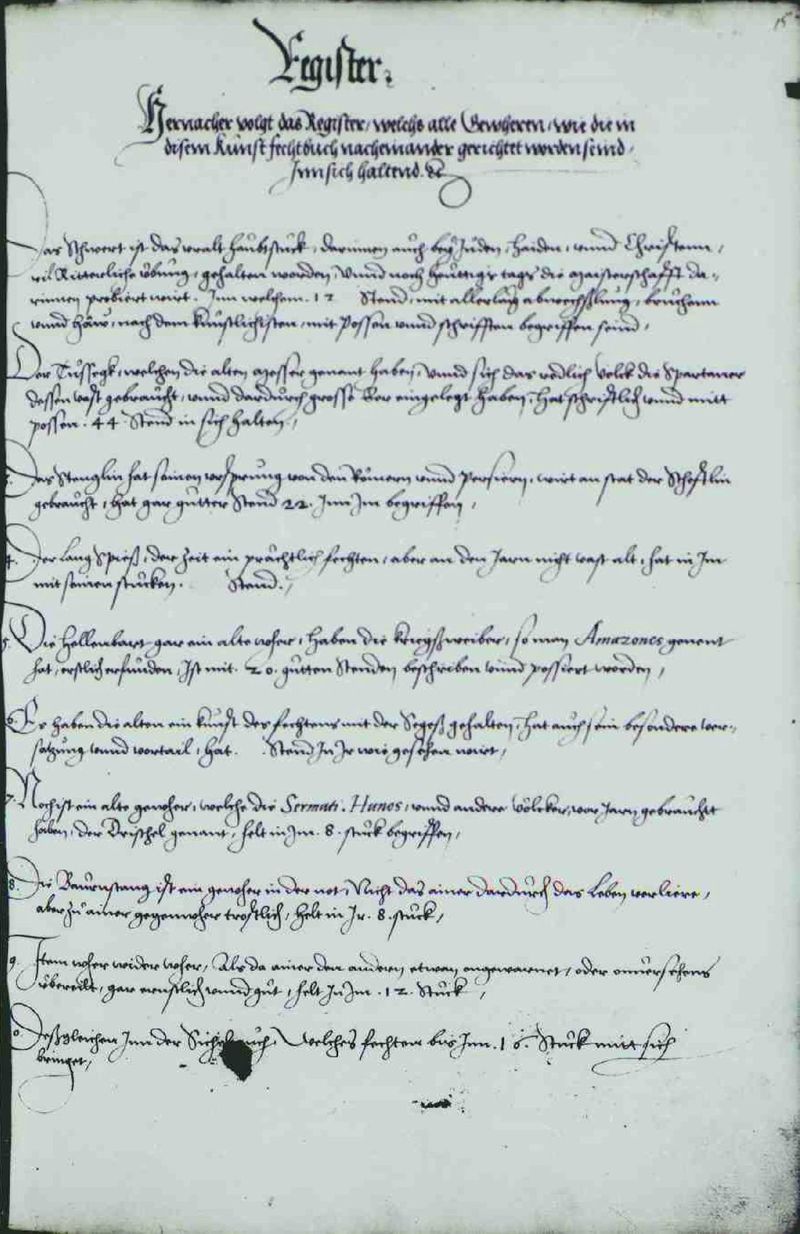 15
Register.
Hernacher volgt das Register, welchs alle Gewheren, wie die in
disem Kunst fechtbuch nacheinander gerichtet worden seind,
Inn sich haltend. etc
Das Schwert ist das vralt haubtstuck, darinnen auch bey Juden, Haiden, vnnd Christenn,
vil Ritterliche übung, gehalten worden, Vnnd noch heuttigs tags die maisterschafft da-
rinnen probiert wirt. Inn welchem. 12 Stend, mit allerlaÿ abwechsslung, brüchenn
vnnd häw, nach dem künstlichisten, mit Possen vnnd schrifften begriffen seind,
Der Tussegk, welchen die alten messer genant haben, Vnnd sich das redlich volck die Spartaner
dessen vast gebraucht, vnnd dardurch grosse Eer eingelegt haben, hat schrifftlich vnnd mitt
possen. 44 Stend in sich halten,
3. Das Stenglin hat seinen vrsprung von den Römern vnnd Persiern, wirt an stat der Scheftlin
gebraucht, hat gar gutter Stend 22. Inn Im begriffen,
4. Der lang Spieß, der Zeit ein prächtlich fechten, aber an den Jarn nicht vast alt, hat in Im
mit seinen stucken. Stend.
5. Die Hellenbart gar ein alte wher, haben die kriegßweiber, so man Amazones genent
hat, erstlich erfunden, Ist mit. 20. gutten Stenden beschriben vnnd possiert worden,
6. Es haben die alten ein kunst des fechtens mit der Segeß gehalten, hat auch sein besondere ver-
satzung vnnd vortail, hat. Stend In Ir wie gesehen wirt,
7. Noch ist ein alte gewher, welche die Sermati. Hunos, vnnd andere völcker, vor Jarn gebraucht
haben, der Drischel genant, helt in Im. 8. stuck begriffen,
8. Die Baurnstang ist ein gewher in der not, Nicht das ainer dardurch das Leben verliere,
aber zu ainer gegenwher trostlich, helt in Ir. 8. stuck,
9. Item wher wider wher, Als da ainer den anderen etwan ongewarnet, oder onuersehens
übereilt, gar ernstlich vnnd gut, helt In Im. 12. Stuck,
Deßgleichen Inn der welches fechten bis Inn. 16. Stuck mitt sich
bringet,